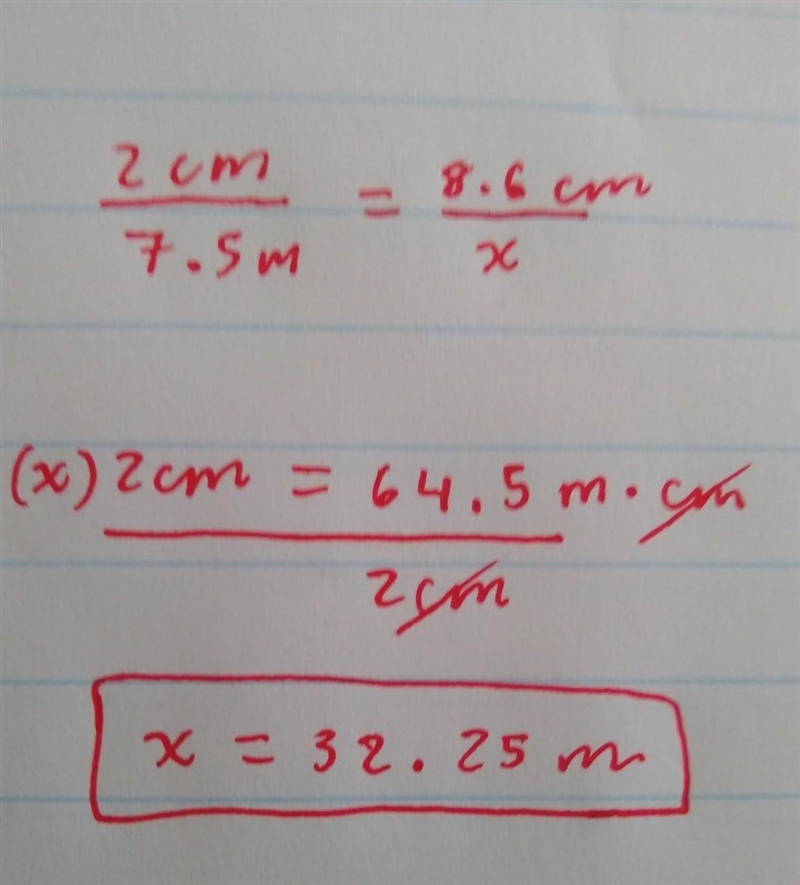 2 cm = 8.6 cm
7.5 m x
(x) 2cm = 64.5 m · cm
2cm
x = 32.25 m